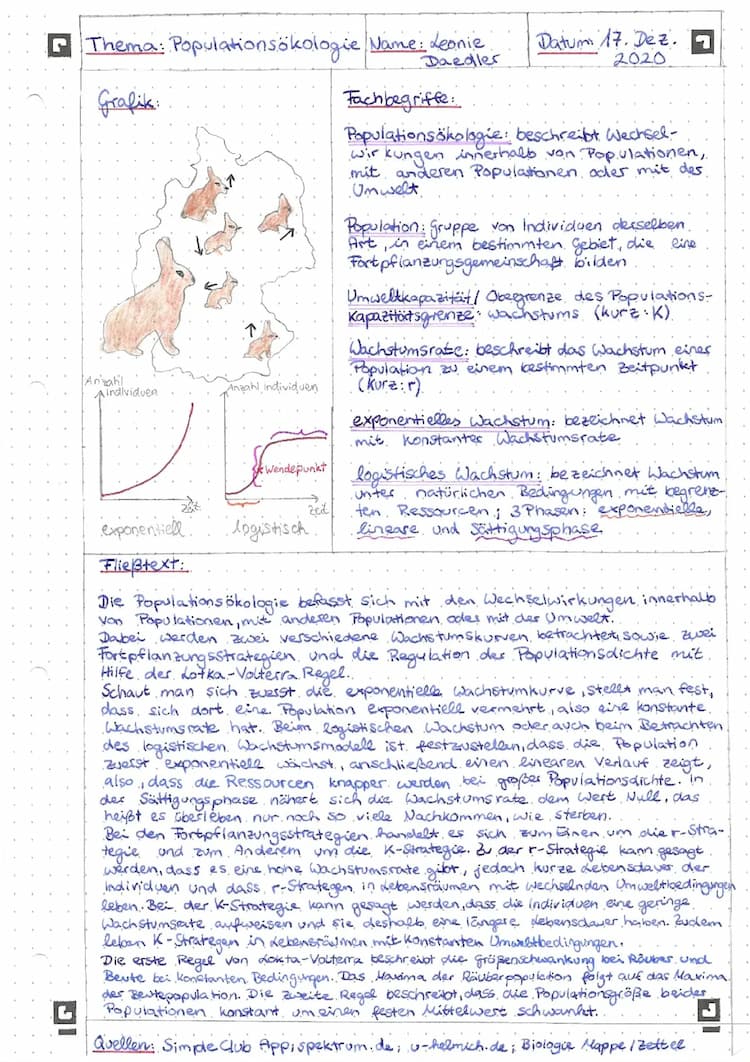 Thema: Populationsökologie
Name: Leonie
Daedler
Datum: 17. Dez.
2020
Grafik:
Anzahl
Individuen
Zeit
exponentiell
Anzahl Individuen
Wendepunkt
Zeit
logistisch
Fachbegriffe:
Populationsökologie: beschreibt Wechsel-
wirkungen innerhalb von Populationen,
mit anderen Populationen oder mit der
Umwelt
Population: Gruppe von Individuen derselben
Art, in einem bestimmten Gebiet, die eine
Fortpflanzungsgemeinschaft bilden
Umweltkapazität/ Obegrenze des Populations-
Kapazitätsgrenze: wachstums (kurz: K)
Wachstumsrate: beschreibt das Wachstum einer
Population zu einem bestimmten Zeitpunkt
(kurz: r)
exponentielles Wachstum: bezeichnet Wachstum
mit konstanter Wachstumsrate
logistisches Wachstum: bezeichnet Wachstum
unter natürlichen Bedingungen mit begrenz-
ten Ressourcen; 3 Phasen: exponentielle,
lineare und Sättigungsphase
Fließtext:
Die Populationsökologie befasst sich mit den Wechselwirkungen innerhalb
von Populationen, mit anderen Populationen oder mit der Umwelt.
Dabei werden zwei verschiedene Wachstumskurven betrachtet, sowie zwei
Fortpflanzungsstrategien und die Regulation der Populationsdichte mit
Hilfe der Lotka-Volterra Regel.
Schaut man sich zuerst die exponentielle Wachstumkurve, stellt man fest,
dass sich dort eine Population exponentiell vermehrt, also eine konstante
Wachstumsrate hat. Beim logistischen Wachstum oder auch beim Betrachten
des logistischen Wachstumsmodell ist festzustellen, dass die Population
zuerst exponentiell wächst, anschließend einen linearen Verlauf zeigt,
also, dass die Ressourcen knapper werden bei großer Populationsdichte. In
der Sättigungsphase nähert sich die Wachstumsrate dem Wert Null, das
heißt es überleben nur noch so viele Nachkommen, wie sterben.
Bei den Fortpflanzungsstrategien handelt es sich zum Einen um die r-Stra-
tegie und zum Anderem um die K-Strategie. Zu der r-Strategie kann gesagt
werden, dass es eine hohe Wachstumsrate gibt, jedoch kurze Lebensdauer der
Individuen und dass r-Strategen in Lebensräumen mit wechselnden Umweltbedingungen
leben. Bei der K-Strategie kann gesagt werden, dass die Individuen eine geringe
Wachstumsrate aufweisen und sie deshalb eine längere Lebensdauer haben. Zudem
leben K-Strategen in Lebensräumen mit konstanten Umweltbedingungen.
Die erste Regel von Lokta-Volterra beschreibt die Größenschwankung bei Räuber und
Beute bei konstanten Bedingungen. Das Maxima der Räuberpopulation folgt auf das Maxima
der Beutepopulation. Die zweite Regel beschreibt, dass die Populationsgröße beider
Populationen konstant um einen festen Mittelwert schwankt.
Quellen: Simple Club App; spektrum.de; u-helmich.de; Biologie Mappe/Zettel